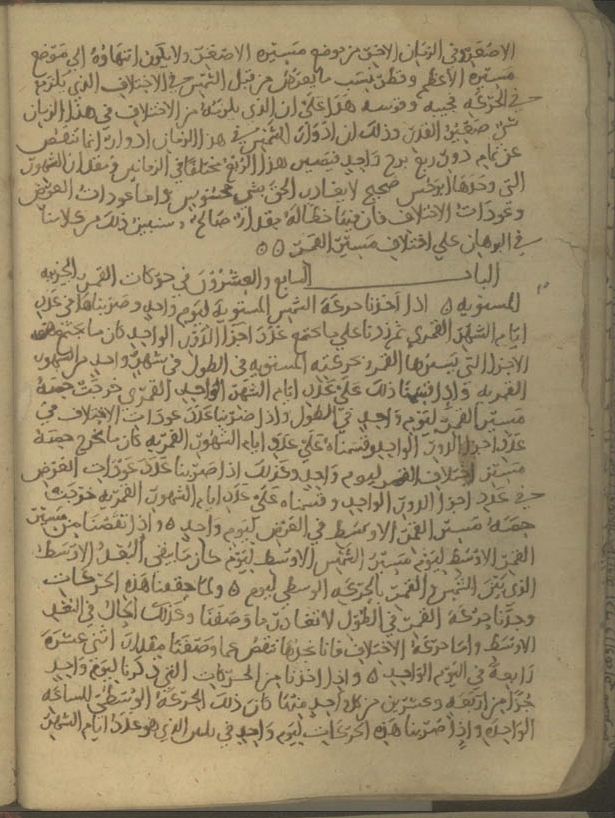 الاصغر وفي الزمان الاخر من موضع مسيره الاصغر ولا يكون انتهاوه الى موضع
مسيره الاعظم وفطن بسبب ما يعرض من قبل الشمس في الاختلاف الذي يلزم
في الحركة بحيبه وقوسه هذا على ان الذي يلزمه من الاختلاف في هذا الزمان
وذلك ان ادوار الشمس في هذا الزمان ادوار انما تنقص
عن تمام دور ربع برج واحد فيصير هذا الربع مختلفا في الزمانين فمقدار الشهور
التي وجدها ابرخس صحيح لا يغادر الحق بشي محسوس واما عودات العرض
وعودات الاختلاف فان فيها خطا له مقدار صالح وسنبين ذلك من كلامنا
في البرهان على اختلاف مسير القمر
الباب السابع والعشرون في حركات القمر الجزيه
المستويه اذا اخذنا حركة الشمس المستويه ليوم واحد وضربناها في عدد
ايام الشهر القمري ثم زدنا على ما اجتمع عدد اجزا الدور الواحد كان ما يجتمع هو
الاجزا التي يسيرها القمر بحركته المستويه في الطول في شهر واحد من الشهور
القمريه واذا قسمنا ذلك على عدد ايام الشهر الواحد القمري خرجت حصة
مسير القمر ليوم واحد في الطول واذا ضربنا عدد عودات الاختلاف في
عدد اجزا الدور الواحد وقسمناه على عدد ايام الشهور القمريه كان ما يخرج حصة
مسير اختلاف القمر ليوم واحد وكذلك اذا ضربنا عدد عودات العرض
في عدد اجزا الدور الواحد وقسمناه على عدد ايام الشهور القمريه خرجت
حصة مسير القمر الاوسط في العرض ليوم واحد واذا نقصنا من مسير
القمر الاوسط ليوم مسير الشمس الاوسط ليوم كان ما يبقى البعد الاوسط
الذي بين الشمس والقمر بالحركة الوسطى ليوم ولما حققنا هذه الحركات
وجدنا حركة القمر في الطول لا تغادر ما وصفنا وكذلك الحال في البعد
الاوسط واما حركة الاختلاف فانا نجدها تنقص عما وصفنا مقدار اثنى عشرة
رابعة في اليوم الواحد واذا اخذنا من الحركات التي ذكرنا ليوم واحد
جزا من اربعة وعشرين من كل واحد منها كان ذلك الحركة الوسطى للساعة
الواحدة واذا ضربنا هذه الحركات ليوم واحد في ثلثين الذي هو عدد ايام الشهر